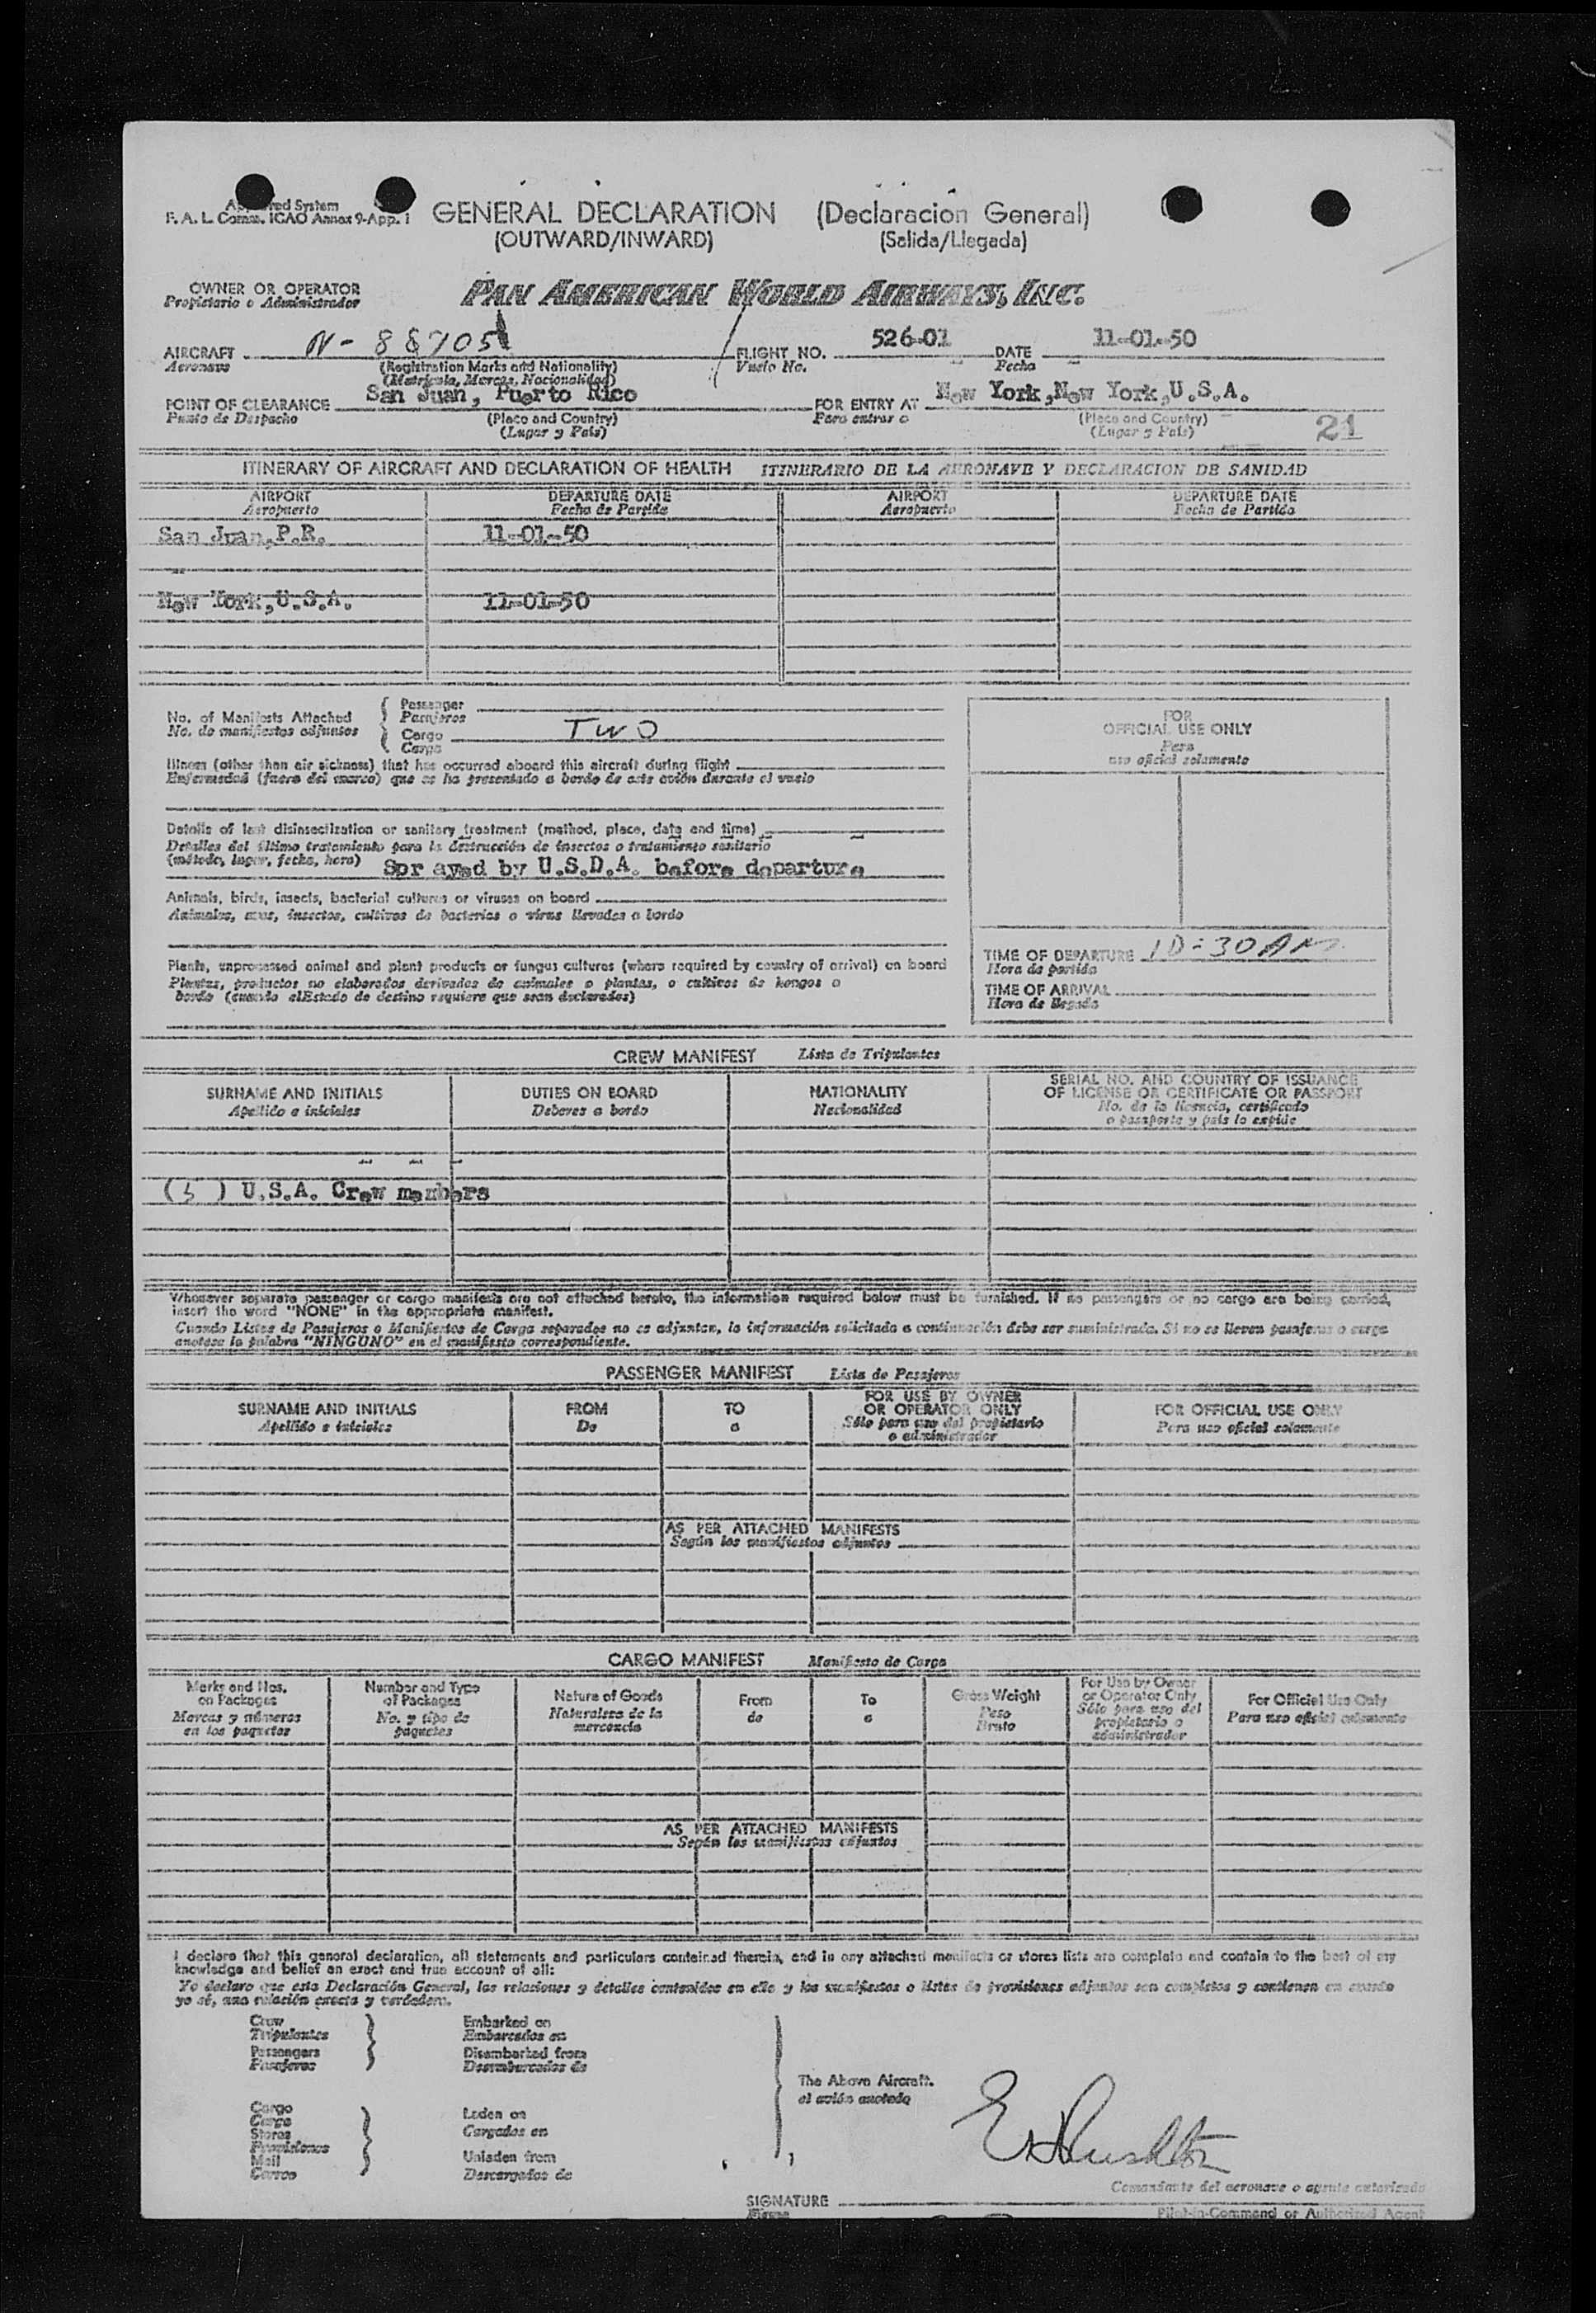 Approved System
F. A. L. Comm. ICAO Annex 9-App. 1
GENERAL DECLARATION (Declaracion General)
(OUTWARD/INWARD) (Salida/Llegada)
OWNER OR OPERATOR
Propietario o Administrador
PAN AMERICAN WORLD AIRWAYS, INC.
AIRCRAFT N-88905 FLIGHT NO. 526-01 DATE 11-01-50
Aeronave (Registration Marks and Nationality) Vuelo No. Fecha
(Matricula, Marcas, Nacionalidad)
POINT OF CLEARANCE San Juan, Puerto Rico FOR ENTRY AT New York,New York,U.S.A.
Punto de Despacho (Place and Country) Para entrar a (Place and Country)
(Lugar y Pais) (Lugar y Pais) 21
ITINERARY OF AIRCRAFT AND DECLARATION OF HEALTH ITINERARIO DE LA AERONAVE Y DECLARACION DE SANIDAD
AIRPORT DEPARTURE DATE AIRPORT DEPARTURE DATE
Aeropuerto Fecha de Partida Aeropuerto Fecha de Partida
San Juan,P.R. 11-01-50
New York,U.S.A. 11-01-50
No. of Manifests Attached
No. de manifiestos adjuntos
Passenger
Pasajeros
Cargo TWO
Carga
Illness (other than air sickness) that has occurred aboard this aircraft during flight
Enfermedad (fuera del mareo) que se ha presentado a bordo de este avión durante el vuelo
Details of last disinsectization or sanitary treatment (method, place, date and time)
Detalles del último tratamiento para la destrucción de insectos o tratamiento sanitario
(método, lugar, fecha, hora) Spr ayed by U.S.D.A. before departure
Animals, birds, insects, bacterial cultures or viruses on board
Animales, aves, insectos, cultivos de bacterias o virus llevados a bordo
Plants, unprocessed animal and plant products or fungus cultures (where required by country of arrival) on board
Plantas, productos no elaborados derivados de animales o plantas, o cultivos de hongos a
bordo (cuando elEstado de destino requiere que sean declarados)
FOR
OFFICIAL USE ONLY
Para
uso oficial solamente
TIME OF DEPARTURE 10:30AM
Hora de partida
TIME OF ARRIVAL
Hora de llegada
CREW MANIFEST Lista de Tripulantes
SURNAME AND INITIALS DUTIES ON BOARD NATIONALITY SERIAL NO. AND COUNTRY OF ISSUANCE
OF LICENSE OR CERTIFICATE OR PASSPORT
Apellido e iniciales Deberes a bordo Nacionalidad No. de la licencia, certificado
o pasaporte y pais lo expide
( 3 ) U.S.A. Crew members
Whenever separate passenger or cargo manifests are not attached hereto, the information required below must be furnished. If no passengers or no cargo are being carried,
insert the word "NONE" in the appropriate manifest.
Cuando Listas de Pasajeros o Manifiestos de Carga separados no se adjuntan, la información solicitada a continuación debe ser suministrada. Si no se llevan pasajeros o carga
anotese la palabra "NINGUNO" en el manifiesto correspondiente.
PASSENGER MANIFEST Lista de Pasajeros
SURNAME AND INITIALS FROM TO FOR USE BY OWNER
OR OPERATOR ONLY FOR OFFICIAL USE ONLY
Apellido e iniciales De a Sólo para uso del propietario
o administrador Para uso oficial solamente
AS PER ATTACHED MANIFESTS
Según los manifiestos adjuntos
CARGO MANIFEST Manifiesto de Carga
Marks and Nos.
on Packages
Marcas y números
en los paquetes
Number and Type
of Packages
No. y tipo de
paquetes
Nature of Goods
Naturaleza de la
mercancia
From
de
To
a
Gross Weight
Peso
Bruto
For Use by Owner
or Operator Only
Sólo para uso del
propietario o
administrador
For Official Use Only
Para uso oficial solamente
AS PER ATTACHED MANIFESTS
Según los manifiestos adjuntos
I declare that this general declaration, all statements and particulars contained therein, and in any attached manifests or stores lists are complete and contain to the best of my
knowledge and belief an exact and true account of all:
Yo declaro que esta Declaración General, las relaciones y detalles contenidos en ella y los manifiestos o listas de provisiones adjuntos son completos y contienen en cuanto
yo sé, una relación exacta y verdadera.
Crew
Tripulantes
Passengers
Pasajeros
Embarked on
Embarcados en
Disembarked from
Desembarcados de
The Above Aircraft.
el avión anotado
Cargo
Carga
Stores
Provisiones
Mail
Correo
Laden on
Cargados en
Unladen from
Descargados de
Comandante del aeronave o agente autorizado
SIGNATURE
Firma
Pilot-in-Command or Authorized Agent